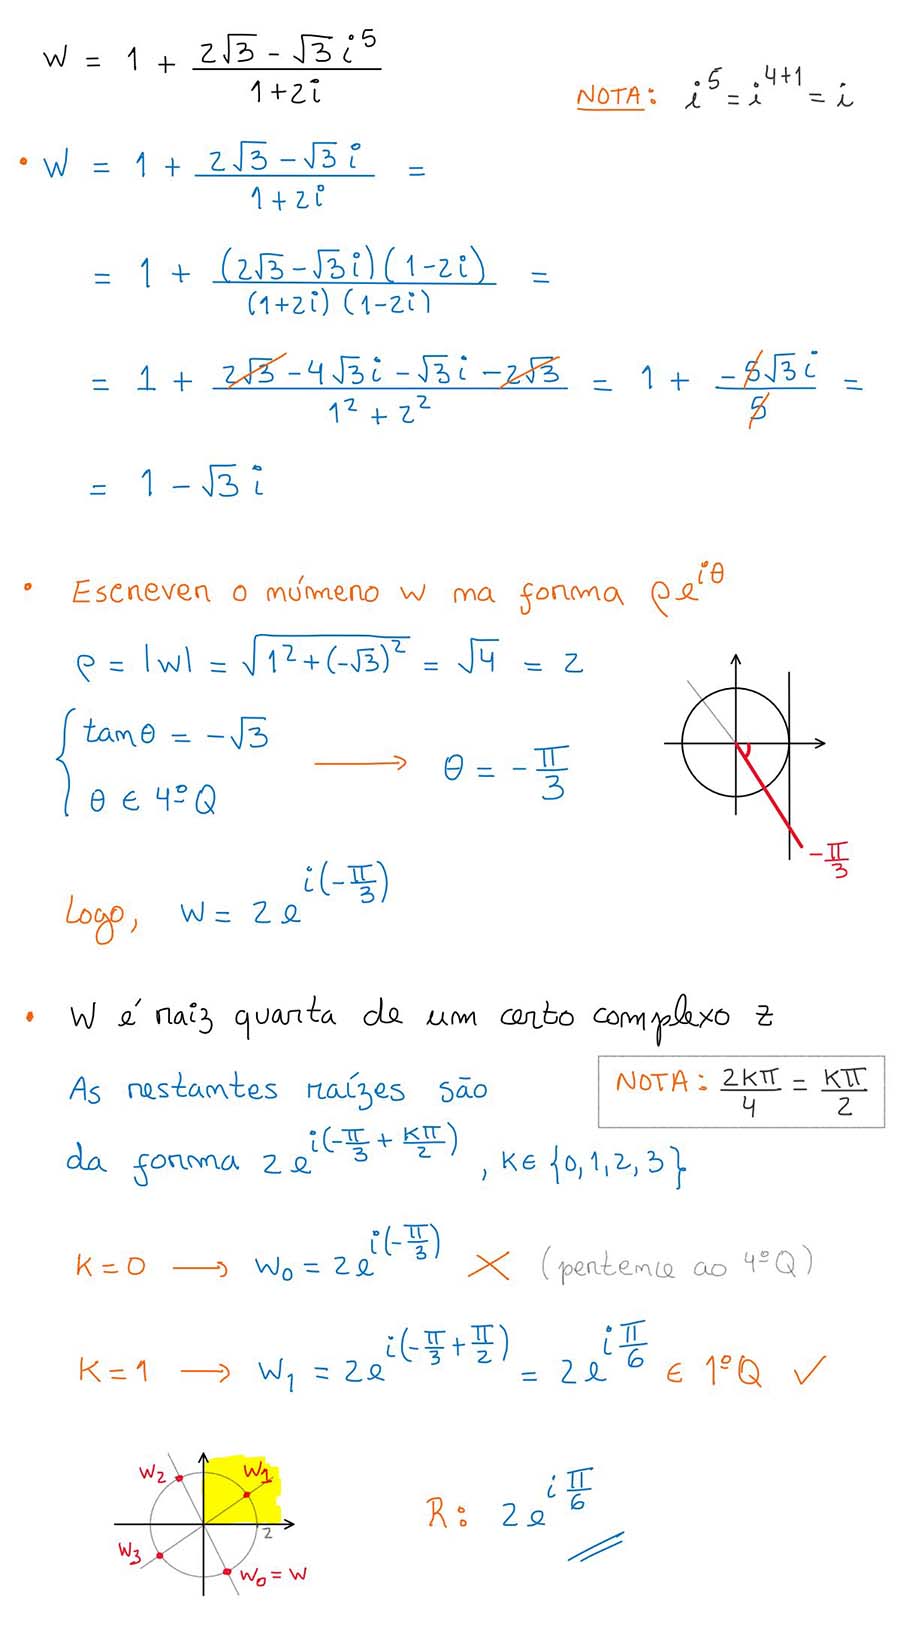 W = 1 + (2√3 - √3 i⁵)/(1+2i)
NOTA: i⁵ = i⁴⁺¹ = i
• W = 1 + (2√3 - √3 i)/(1+2i) =
= 1 + ((2√3 - √3 i)(1-2i))/((1+2i)(1-2i)) =
= 1 + (2√3 - 4√3 i - √3 i - 2√3)/(1² + 2²) = 1 + (-5√3 i)/5 =
= 1 - √3 i
• Escrever o número w na forma ρe^(iθ)
ρ = |w| = √(1² + (-√3)²) = √4 = 2
{ tanθ = -√3
θ ∈ 4º Q
⟶ θ = -π/3
-π/3
Logo, W = 2e^(i(-π/3))
• W é raiz quarta de um certo complexo z
As restantes raízes são
NOTA: 2kπ/4 = kπ/2
da forma 2e^(i(-π/3 + kπ/2)) , k∈{0,1,2,3}
K=0 ⟶ W₀ = 2e^(i(-π/3)) ✗ (pertence ao 4ºQ)
K=1 ⟶ W₁ = 2e^(i(-π/3+π/2)) = 2e^(iπ/6) ∈ 1ºQ ✓
W₂
W₁
2
W₃
W₀ = W
R: 2e^(iπ/6)